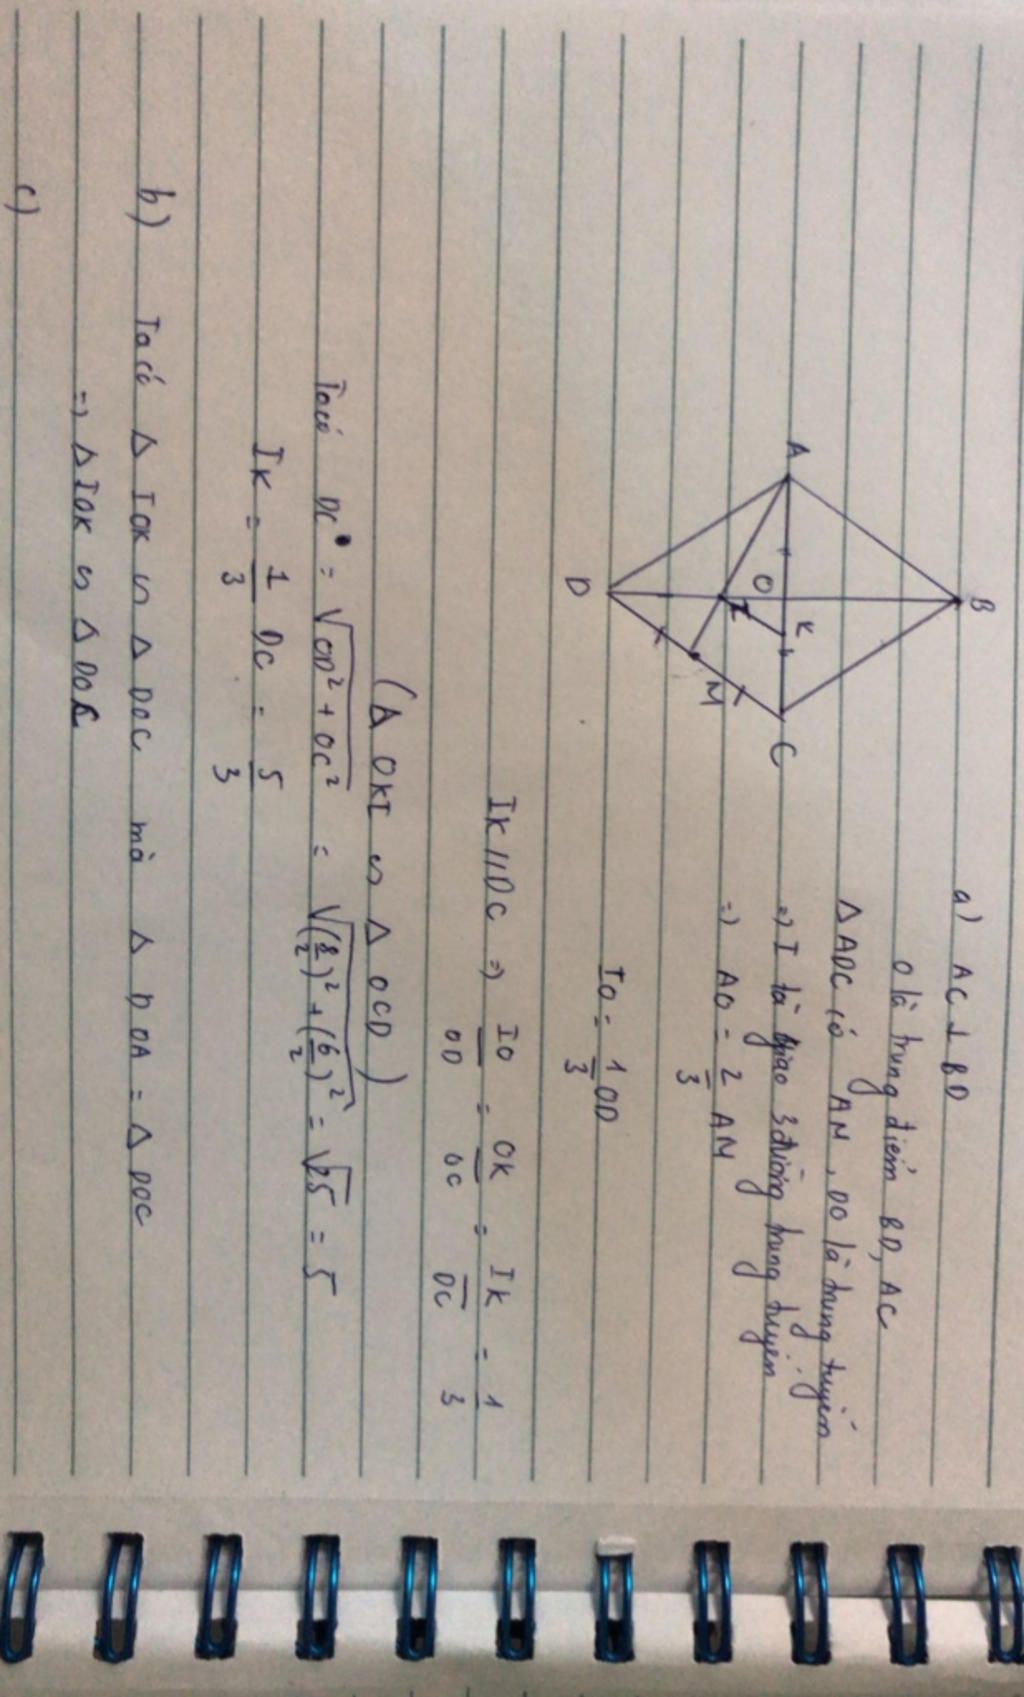 a) AC ⊥ BD
O là trung điểm BD, AC
Δ ADC có AM, DO là trung tuyến
=> I là giao 3 đường trung tuyến
=> AO = 2/3 AM
IO = 1/3 OD
IK // DC => IO/OD = OK/OC = IK/DC = 1/3
(Δ OKI ∽ Δ OCD)
Ta có DC = √(OD² + OC²) = √((8/2)² + (6/2)²) = √25 = 5
IK = 1/3 DC = 5/3
b) Ta có Δ IOK ∽ Δ DOC mà Δ DOA = Δ DOC
=> Δ IOK ∽ Δ DOC
c)
B
A
O
K
I
C
M
D